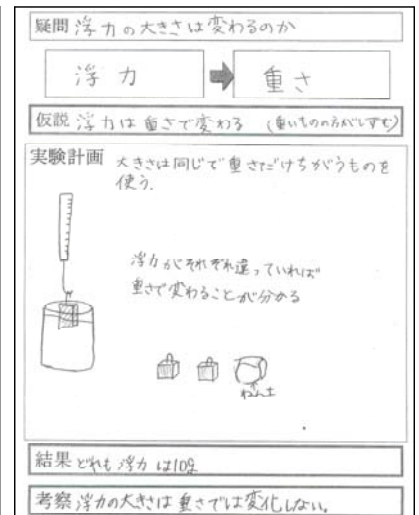 疑問 浮力の大きさは変わるのか
浮力 ➡ 重さ
仮説 浮力は重さで変わる (重いものの方がしずむ)
実験計画 大きさは同じで重さだけちがうものを
使う.
浮力がそれぞれ違っていれば
重さで変わることが分かる
ねん土
結果 どれも浮力は10g
考察 浮力の大きさは重さでは変化しない。